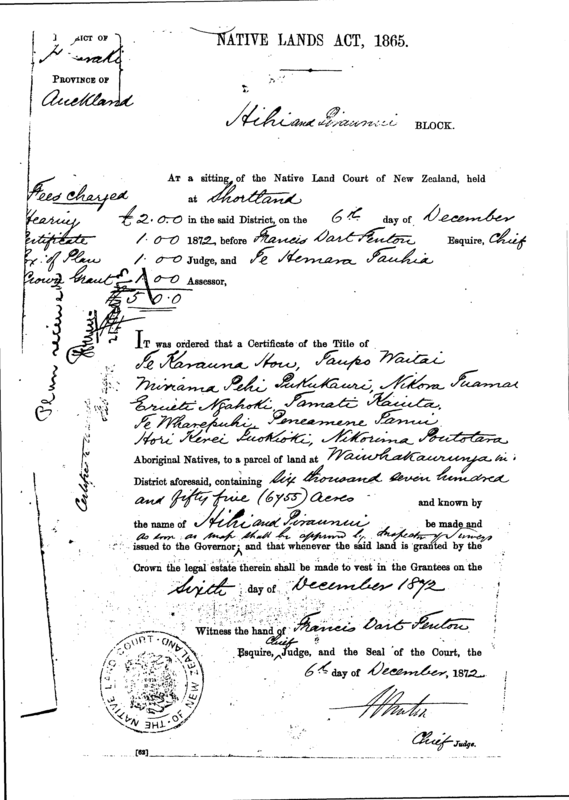 NATIVE LANDS ACT, 1865.
DISTRICT OF
Hauraki
PROVINCE OF
Auckland
Hihi and Pirauniu BLOCK.
AT a sitting of the Native Land Court of New Zealand, held
at Shortland
Fees charged
Hearing £2.0.0 in the said District, on the 6th day of December
Certificate 1.0.0 1872, before Francis Dart Fenton Esquire, Chief
Ex. of Plan 1.0.0 Judge, and Te Hemara Tauhia
Crown Grant 1.0.0 Assessor,
5.0.0
Plan received
IT was ordered that a Certificate of the Title of
Te Karauna Hou, Taupo Waitai
Miriama Pehi Pukukauri, Nikora Tuamai
Erueti Ngahoki, Tamati Kaiuta,
Te Wharepuhi, Peneamene Tanui,
Hori Kerei Tuokioki, Nikorima Poutotara
Aboriginal Natives, to a parcel of land at Waiwhakaurunga in
District aforesaid, containing Six thousand seven hundred
and fifty five (6755) Acres and known by
the name of Hihi and Pirauniu be made and
as soon as map shall be approved by Inspector of Surveys
issued to the Governor; and that whenever the said land is granted by the
Crown the legal estate therein shall be made to vest in the Grantees on the
Sixth day of December 1872
Witness the hand of Francis Dart Fenton
Esquire, Chief Judge, and the Seal of the Court, the
6th day of December, 1872.
Chief Judge.
THE NATIVE LAND COURT OF NEW ZEALAND
[63]